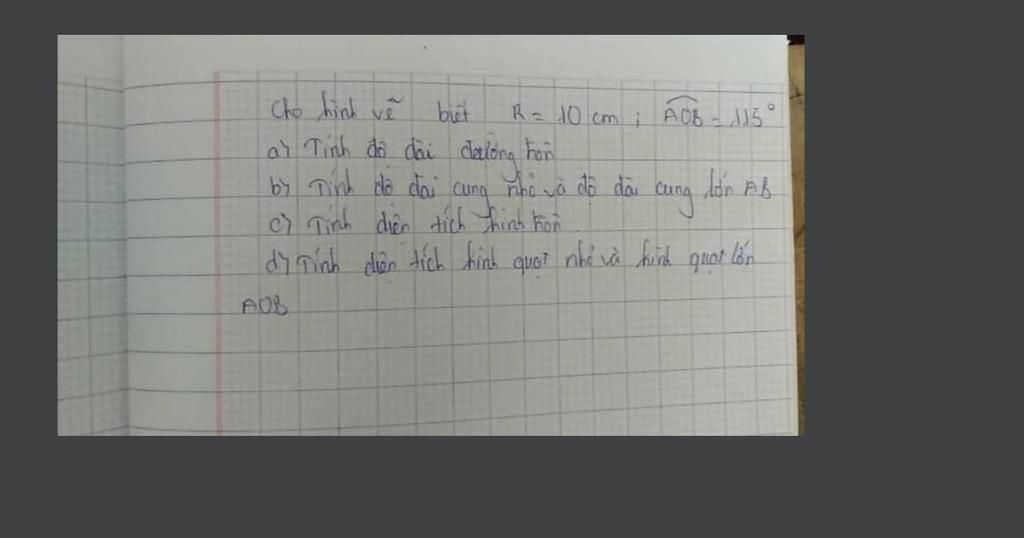 Cho hình vẽ biết R = 10 cm ; AOB = 115°
a) Tính độ dài đường tròn
b) Tính độ dài cung nhỏ và độ dài cung lớn AB
c) Tính diện tích hình tròn.
d) Tính diện tích hình quạt nhỏ và hình quạt lớn
AOB